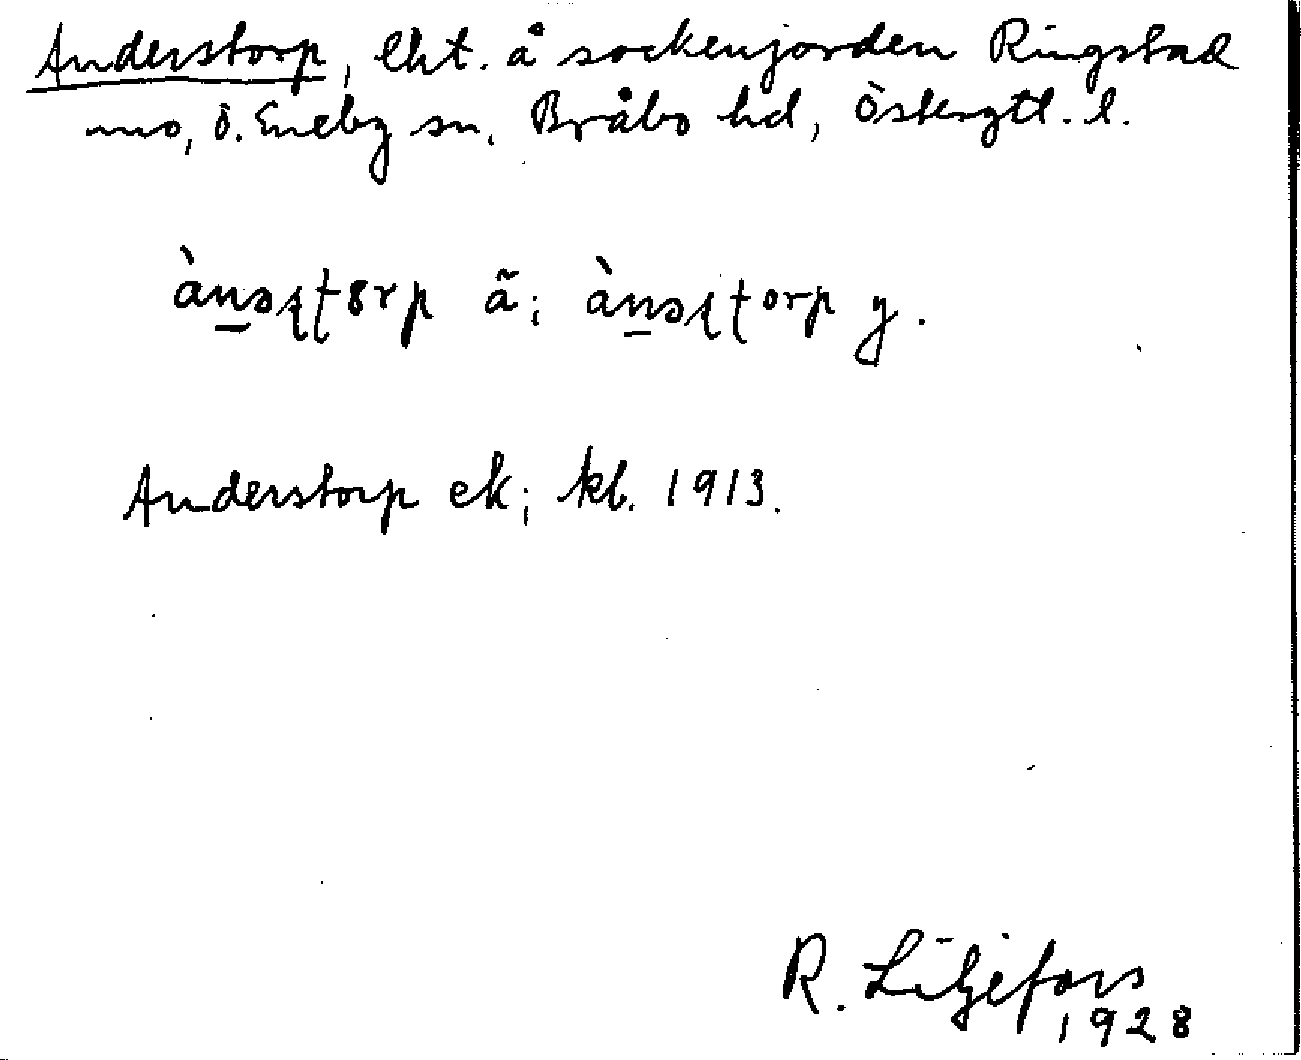 Anderstorp, lht. å sockenjorden Ringstad
mo, Ö. Eneby sn, Bråbo hd, Östergtl. l.
Anderstorp ek; kb. 1913.
R. Liljefors
1928